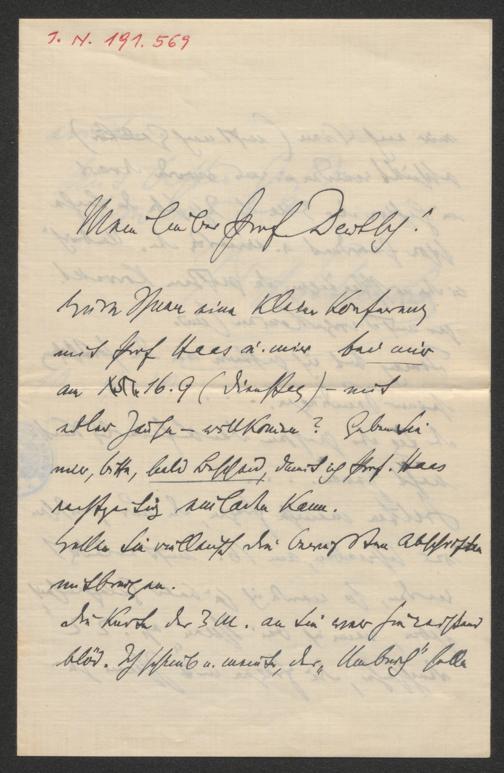 I. N. 191.569
Mein lieber Prof Deutsch!
Wäre Ihnen eine kleine Konferenz
mit Prof Haas u. mir bei mir
am 16.9 (Dienstag) – mit
edler Jause – willkommen? Geben Sie
mir, bitte, bald Bescheid, damit ich Prof. Haas
rechtzeitig einladen kann.
Wollen Sie vielleicht die Abschriften
mitbringen.
Die Karte der Z M. an Sie war
blöd. Ich schrieb u. meinte, der „ solle